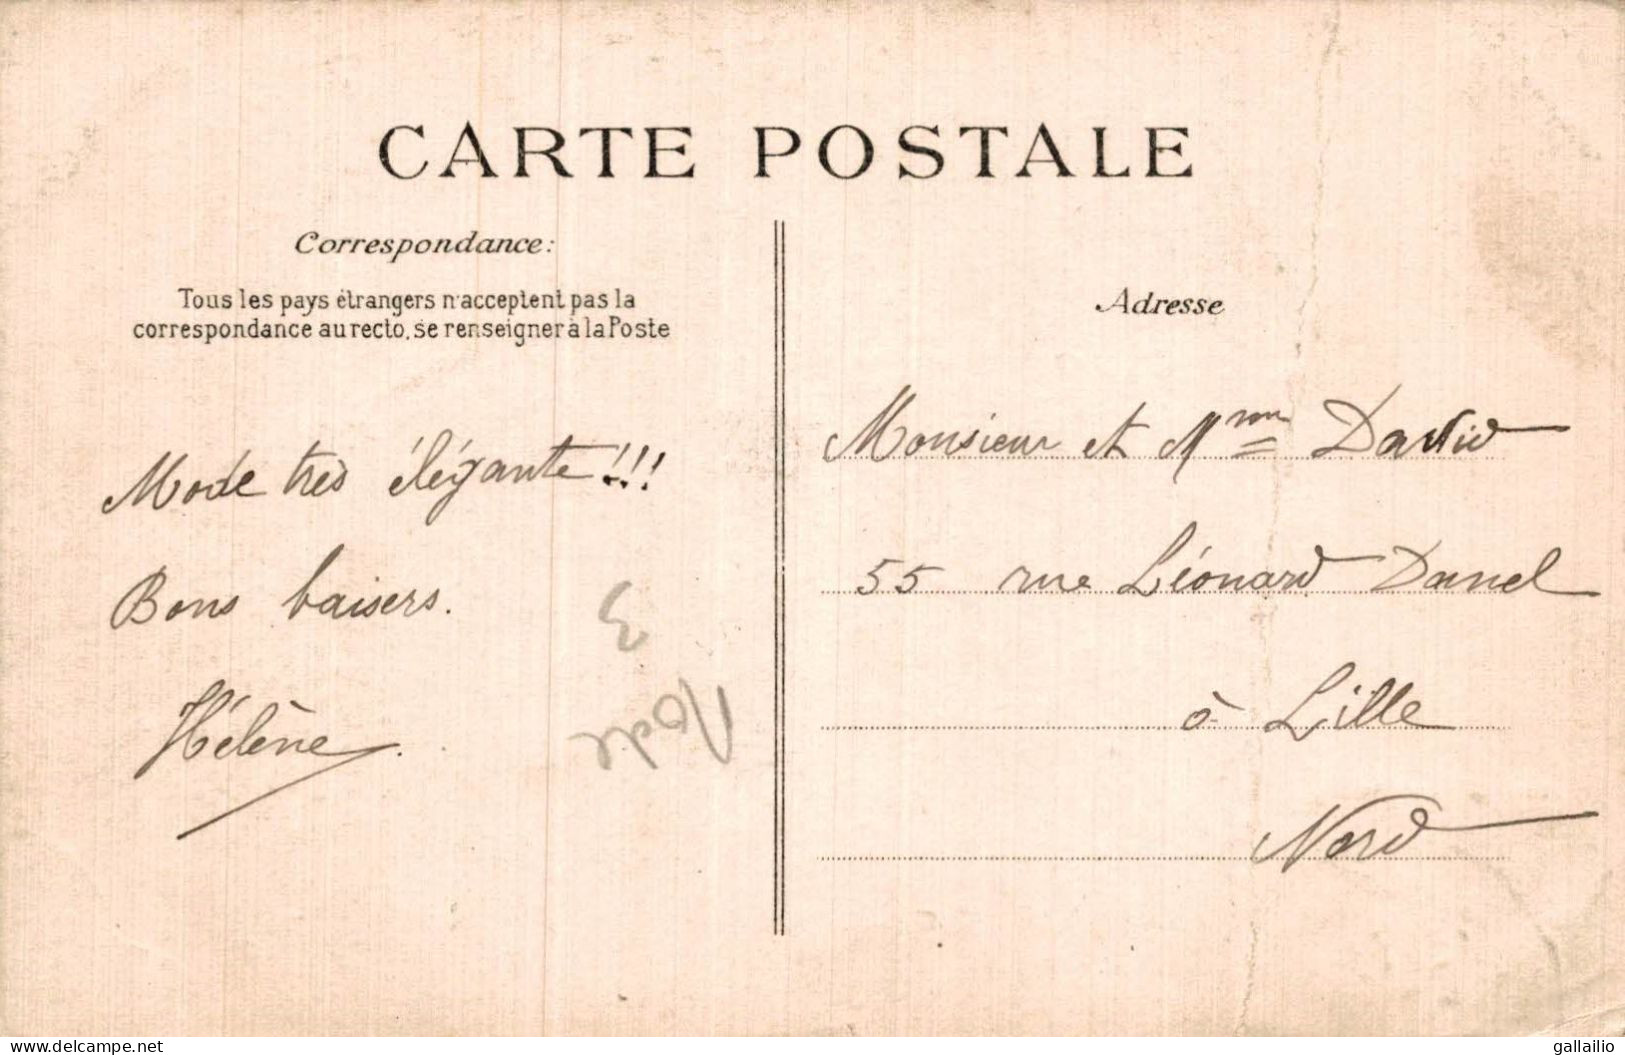 CARTE POSTALE
Correspondance:
Tous les pays étrangers n'acceptent pas la
correspondance au recto, se renseigner à la Poste
Mode très élégante!!!
Bons baisers.
Hélène.
3
Mode
Adresse
Monsieur et Mme David
55 rue Léonard Danel
à Lille
Nord
www.delcampe.net
gallailio